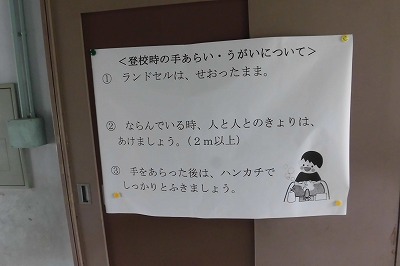 ＜登校時の手あらい・うがいについて＞
① ランドセルは、せおったまま。
② ならんでいる時、人と人とのきょりは、
あけましょう。（２ｍ以上）
③ 手をあらった後は、ハンカチで
しっかりとふきましょう。